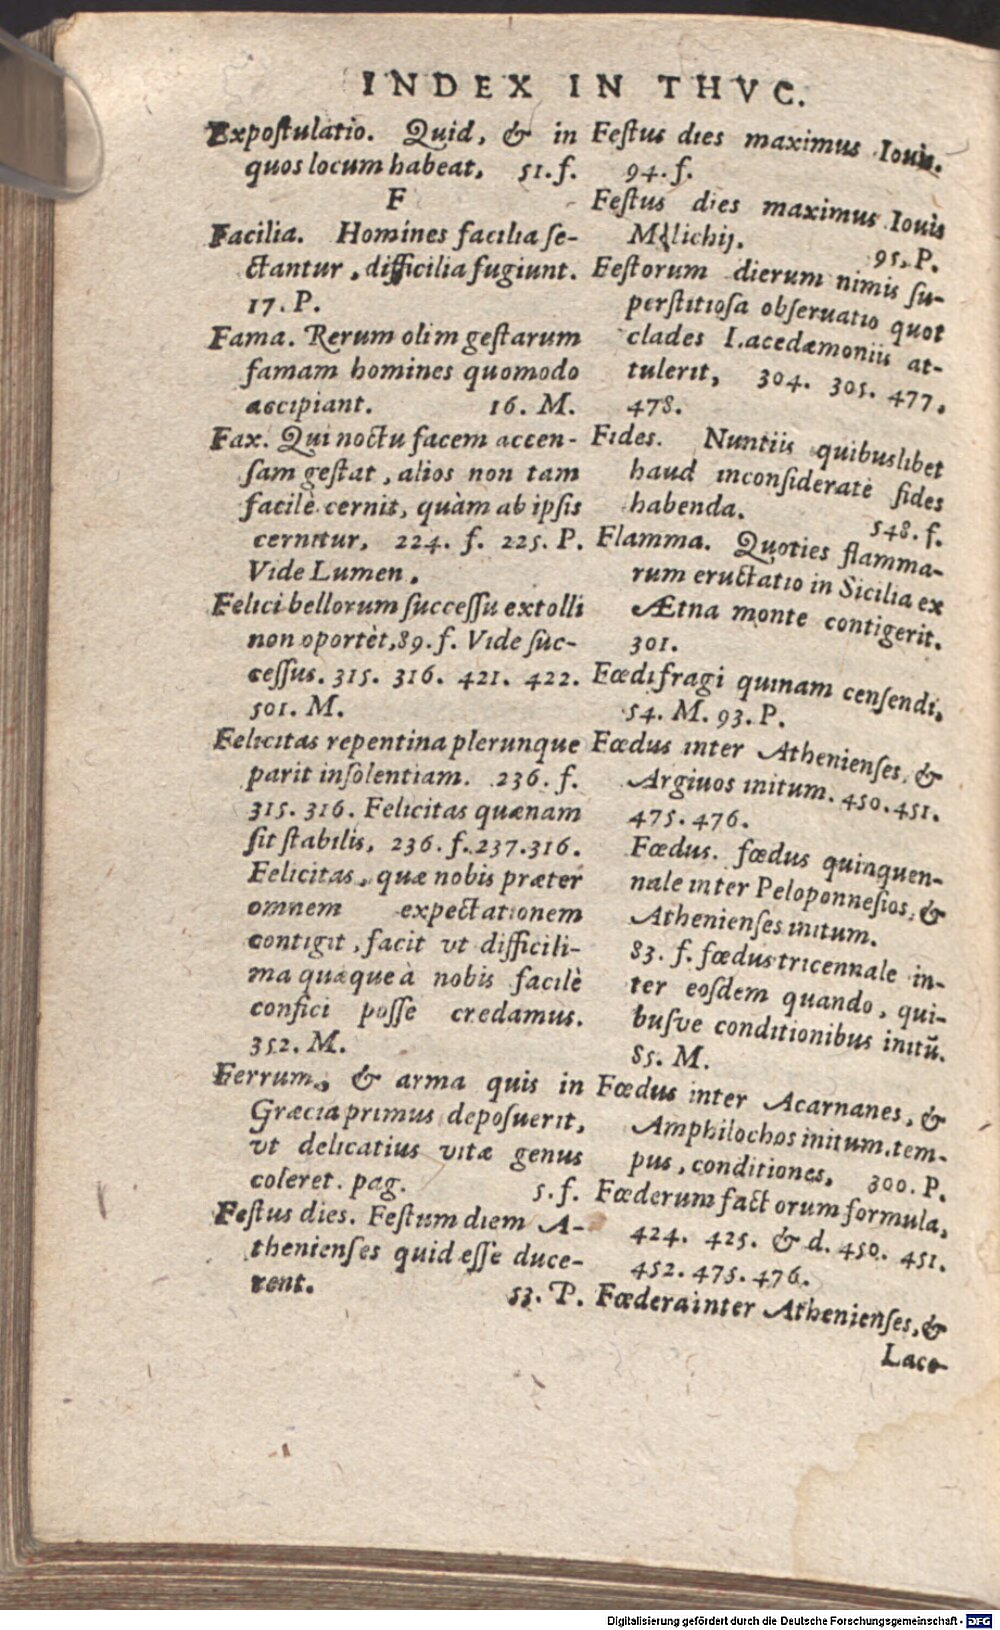 INDEX IN THVC.
Expostulatio. Quid, & in
quos locum habeat, 51. f.
F
Facilia. Homines facilia se-
ctantur, difficilia fugiunt.
17. P.
Fama. Rerum olim gestarum
famam homines quomodo
accipiant. 16. M.
Fax. Qui noctu facem accen-
sam gestat, alios non tam
facilè cernit, quàm ab ipsis
cernitur, 224. f. 225. P.
Vide Lumen.
Felici bellorum successu extolli
non oportèt, 89. f. Vide suc-
cessus. 315. 316. 421. 422.
501. M.
Felicitas repentina plerunque
parit insolentiam. 236. f.
315. 316. Felicitas quænam
sit stabilis, 236. f. 237. 316.
Felicitas, quæ nobis præter
omnem expectationem
contigit, facit vt difficili-
ma quæque à nobis facilè
confici posse credamus.
352. M.
Ferrum, & arma quis in
Græcia primus deposuerit,
vt delicatius vitæ genus
coleret. pag. 5. f.
Festus dies. Festum diem A-
thenienses quid esse duce-
rent. 53. P.
Festus dies maximus Iouis.
94. f.
Festus dies maximus Iouis
Milichij. 95. P.
Festorum dierum nimis su-
perstitiosa obseruatio quot
clades Lacedæmoniis at-
tulerit, 304. 305. 477.
478.
Fides. Nuntiis quibuslibet
haud inconsideratè fides
habenda. 548. f.
Flamma. Quoties flamma-
rum eructatio in Sicilia ex
Ætna monte contigerit.
301.
Fœdifragi quinam censendi,
54. M. 93. P.
Fœdus inter Athenienses, &
Argiuos initum. 450. 451.
475. 476.
Fœdus. fœdus quinquen-
nale inter Peloponnesios, &
Athenienses initum.
83. f. fœdus tricennale in-
ter eosdem quando, qui-
busve conditionibus initū.
85. M.
Fœdus inter Acarnanes, &
Amphilochos initum. tem-
pus, conditiones, 300. P.
Fœderum factorum formula,
424. 425. & d. 450. 451.
452. 475. 476.
Fœdera inter Athenienses, &
Lace-
Digitalisierung gefördert durch die Deutsche Forschungsgemeinschaft - DFG